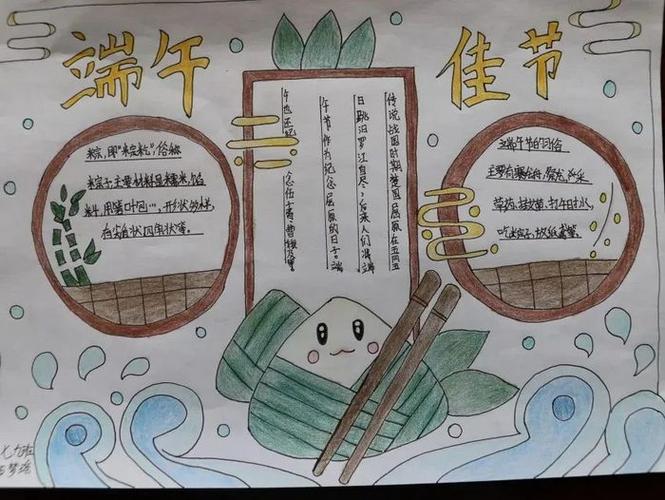 端午 佳节
粽，即"粽籺"，俗称
粽子，主要材料是糯米、馅
料，用箬叶包…，形状多样，
有尖角状四角状等。
传说战国时期楚国屈原在五月五
日跳汨罗江自尽，后来人们将端
午节作为纪念屈原的日子；端
午也还纪念伍子胥、曹娥及等
端午节的习俗
主要有赛龙舟、祭龙、采
草药、挂艾草、打午日水、
吃粽子、放纸鸢等。
七九班